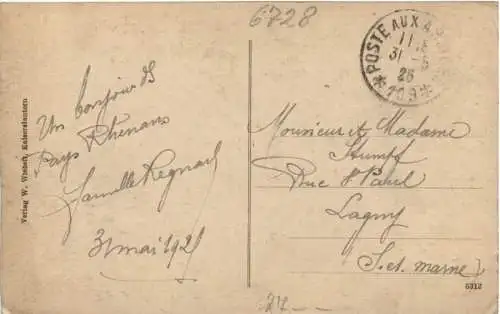 6728
POSTE AUX A
11
31 - 5
26
* 109 *
Un bonjour des
Pays Rhénans
Famille Regnard
31 mai 192
Verlag W. Wietsch, Kaiserslautern
Monsieur et Madame
Stumpf
Rue St Paul
Lagny
S. et. marne)
6312
27 - -